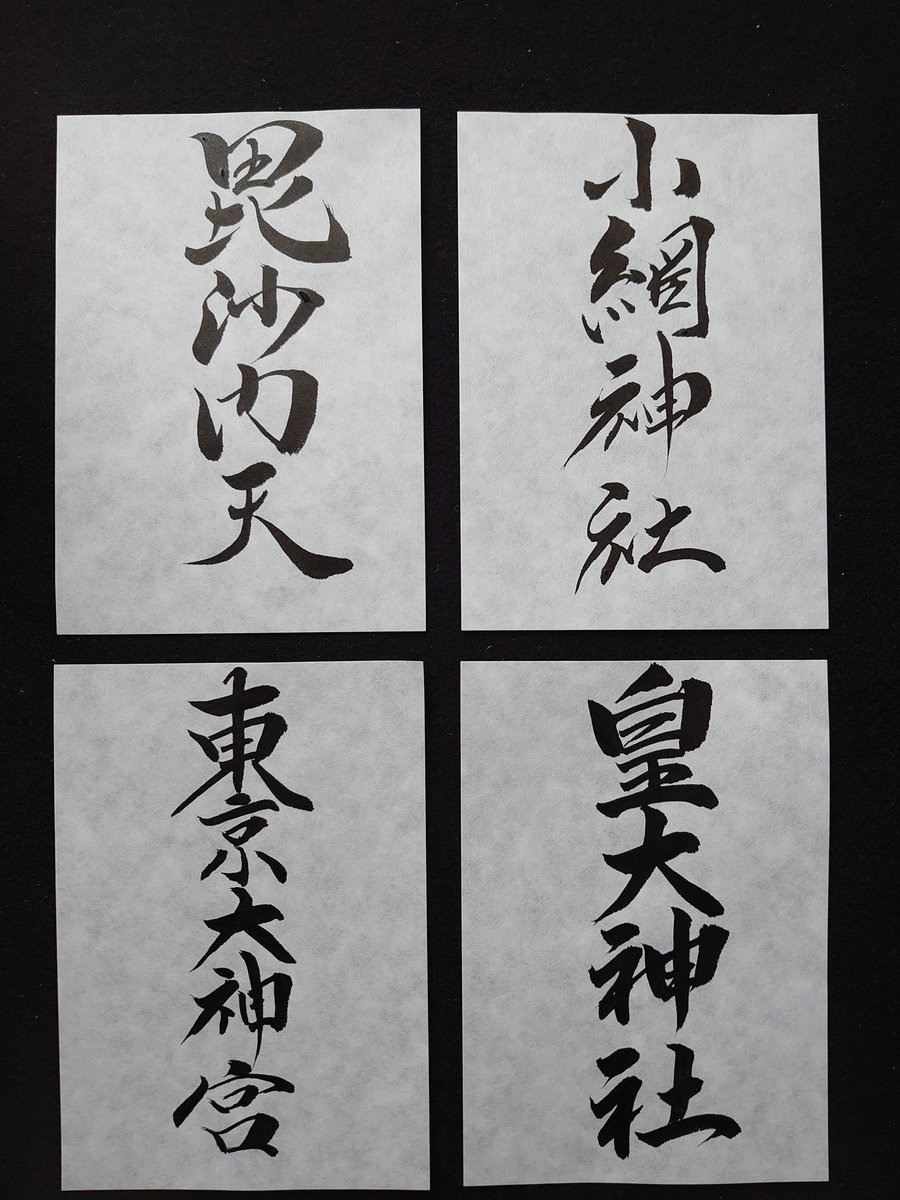 小網神社
毘沙内天
皇大神社
東京大神宮